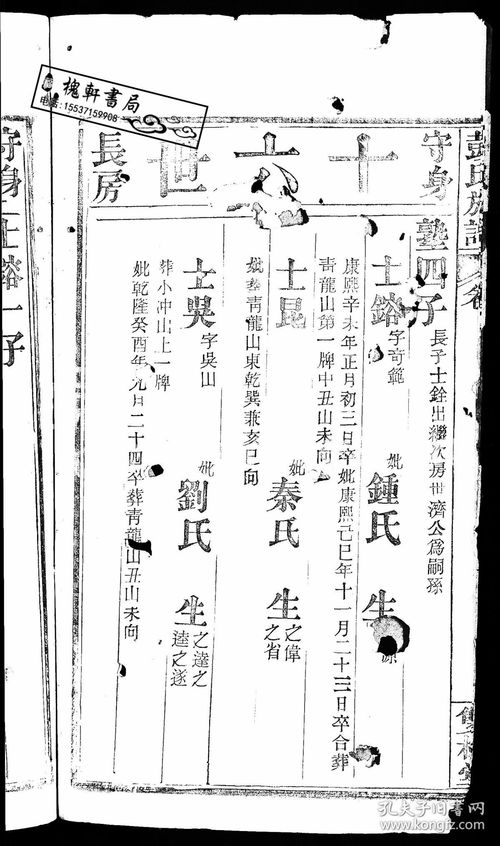 槐軒書局
电话:15537159908
彭氏族譜
守身
十六世
長房
塾四子 長子士銓出繼次房世濟公爲嗣孫
士鎔 字奇範 妣鍾氏 生 源
康熙辛未年正月初三日卒妣康熙己巳年十一月二十三日卒合葬
青龍山第一牌中丑山未向
士昆 妣秦氏 生 之偉
之省
妣葬青龍山東乾巽兼亥巳向
士吳 字吳山 妣劉氏 生 之達之
逵之遂
葬小冲山上一牌
妣乾隆癸酉年九月二十四卒葬青龍山丑山未向
守身 士鎔一子
孔夫子旧书网
kongfz.com